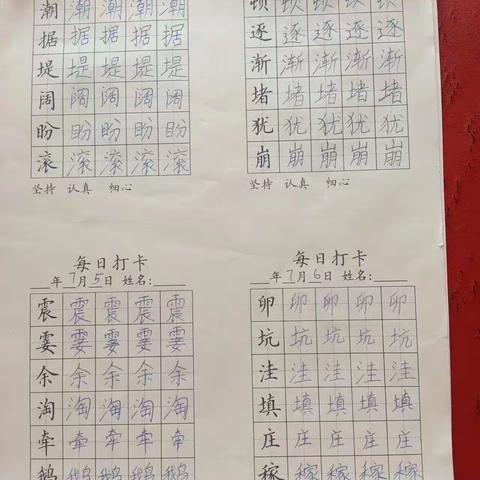 潮 潮 潮 潮 潮
据 据 据 据 据
堤 堤 堤 堤 堤
阔 阔 阔 阔 阔
盼 盼 盼 盼 盼
滚 滚 滚 滚 滚
坚持 认真 细心
顿 顿 顿 顿 顿
逐 逐 逐 逐 逐
渐 渐 渐 渐 渐
堵 堵 堵 堵 堵
犹 犹 犹 犹 犹
崩 崩 崩 崩 崩
坚持 认真 细心
每日打卡
__年 7月 5日 姓名:____
震 震 震 震 震
霎 霎 霎 霎 霎
余 余 余 余 余
淘 淘 淘 淘 淘
牵 牵 牵 牵 牵
鹅 鹅 鹅 鹅 鹅
每日打卡
__年 7月 6日 姓名:____
卵 卵 卵 卵 卵
坑 坑 坑 坑 坑
洼 洼 洼 洼 洼
填 填 填 填 填
庄 庄 庄 庄 庄
稼 稼 稼 稼 稼